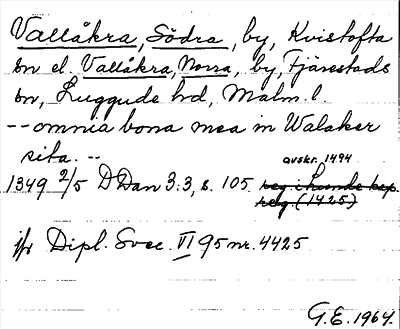 Vallåkra, Södra, by, Kvistofta
sn el. Vallåkra, Norra, by, Fjärestads
sn, Luggude hd, Malm. l.
-- omnia bona mea in Walaker
sita. --
avskr. 1494
1349 2/5 DDan 3:3, s. 105. reg i Lunde kap.
relg (1425)
jfr Dipl. Svec. VI 95 nr. 4425
G.E. 1964.